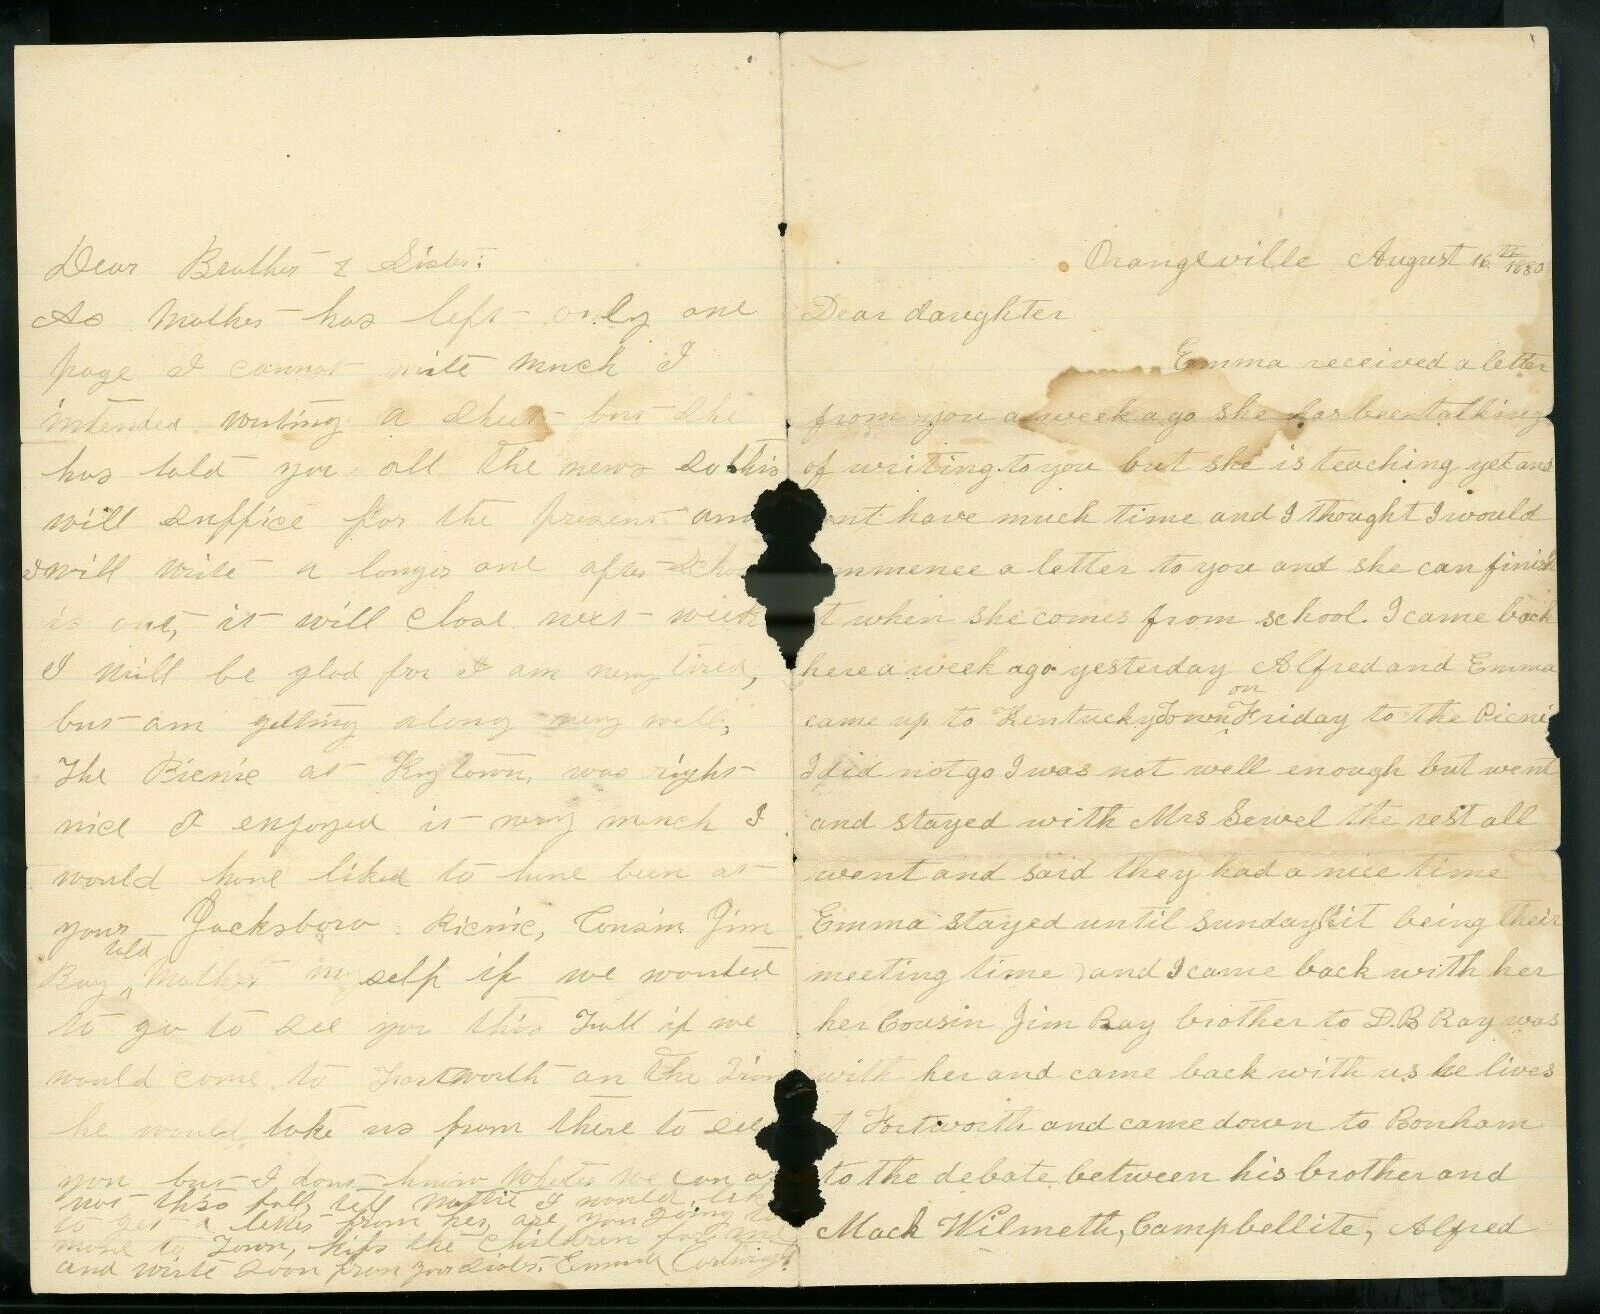 Orangeville August 16th 1880
Dear daughter
Emma received a letter
from you a week ago she has been talking
of writing to you but she is teaching yet and
ont have much time and I thought I would
mmence a letter to you and she can finish
t when she comes from school. I came back
here a week ago yesterday Alfred and Emma
came up to KentuckyTown on Friday to the Picni
I did not go I was not well enough but went
and stayed with Mrs Sewel the rest all
went and said they had a nice time
Emma stayed until sunday (it being their
meeting time) and I came back with her
her Cousin Jim Ray brother to D.B Ray was
with her and came back with us he lives
t Fortworth and came down to Bonham
to the debate between his brother and
Mack Wilmeth, Campbellite, Alfred
Dear Brother & Sister:
As Mother has left only one
page I cannot write much I
intended writing a sheet but she
has told you all the news so this
will suffice for the present and
I will write a longer one after schoo
is out, it will close next week
I will be glad for I am very tired,
but am getting along very well,
The Picnic at Kytown, was right
nice I enjoyed it very much I
would have liked to have been at
your Jacksboro Picnic, Cousin Jim
Ray told Mother myself if we wanted
to go to see you this Fall if we
would come to Fortworth on the
he would take us from there to see
you but I dont know whether we can or
not this fall, tell Mattie I would like
to get a letter from her, are you going to
move to Town, kiss the children for me
and write soon from your sister. Emma